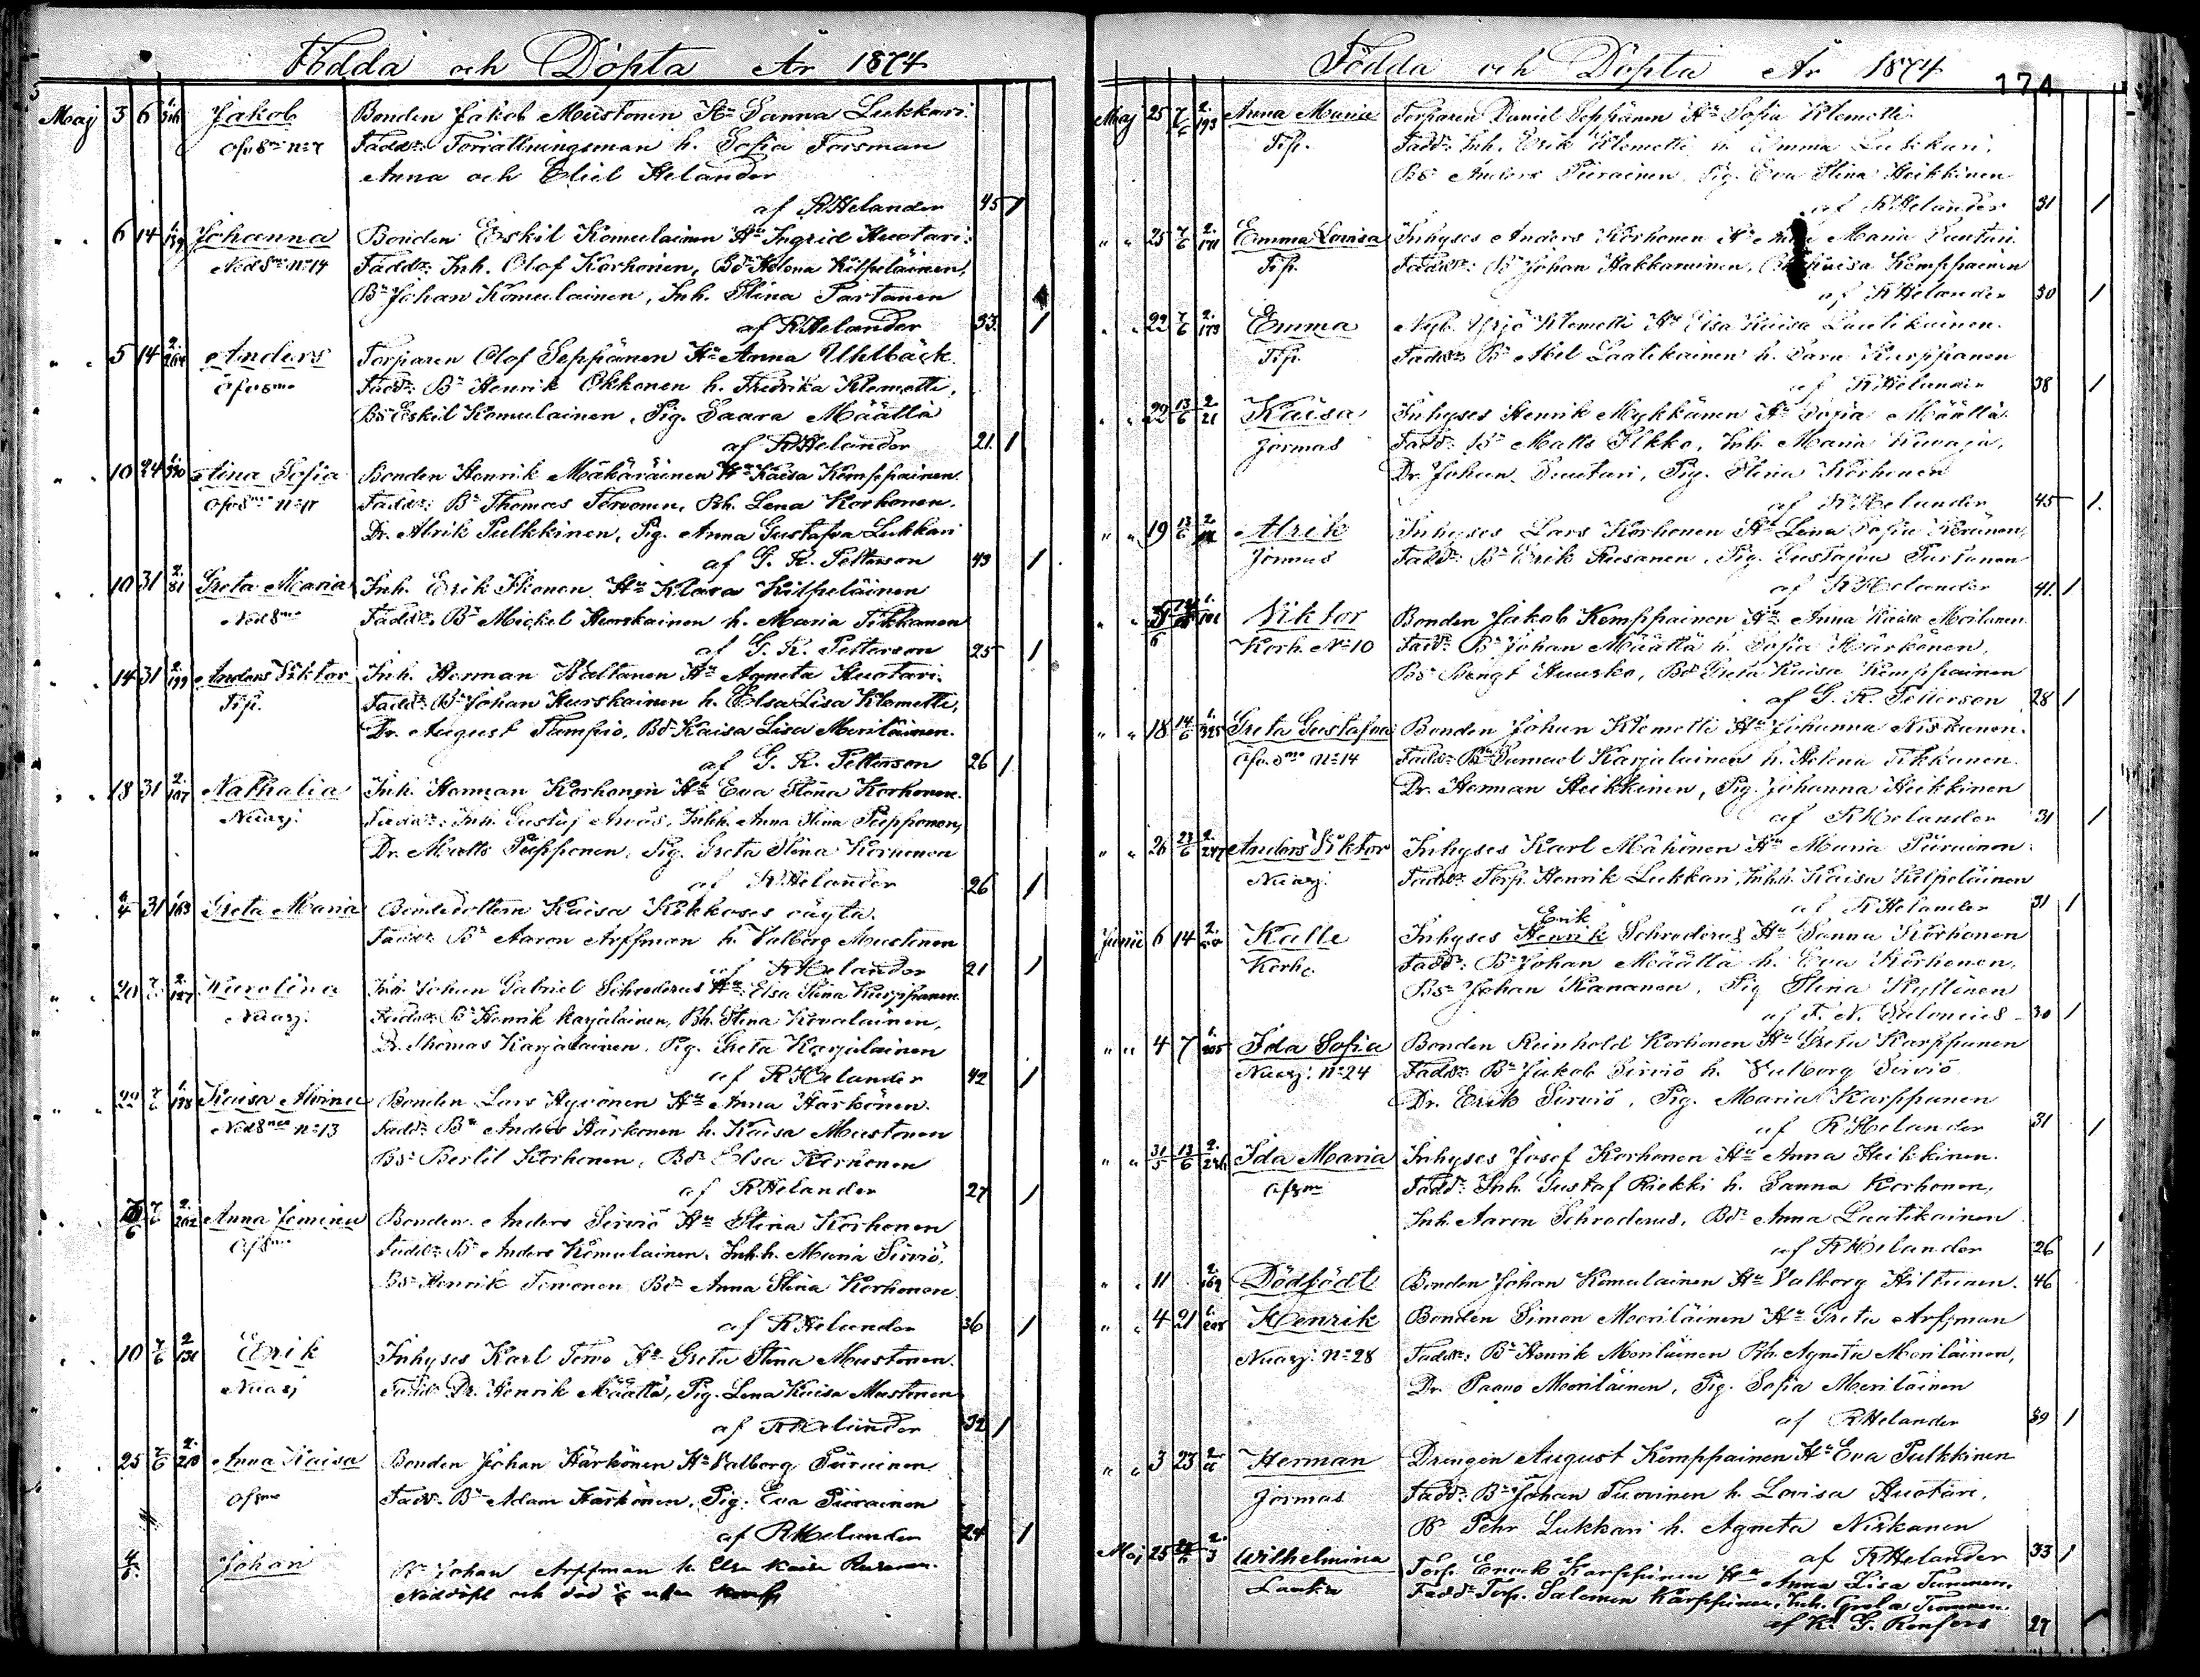 Födda och Döpta År 1874
Maj 3 6 Jakob Bonden Jakob Mustonen Hu Sanna Lukkari.
Ofvo8me No 7 Fadd: Förrättningsman h. Sofia Forsman
Anna och Eliel Helander
af RHelander 45 1
" " 6 14 1. 139 Johanna Bonden Eskil Komulainen Hu Ingrid Huotari.
Ned8me No 14 Fadd: Inh. Olof Korhonen, Bdr Helena Kilpeläinen,
Bn Johan Komulainen, Inh. Stina Partanen
af RHelander 33. 1
" " 5 14 2. Anders Torparen Olof Seppänen Hu Anna Uhlbäck.
Ofvo8me Fadd: Bn Henrik Okkonen h. Fredrika Klemetti,
Bs Eskil Komulainen, Pig. Saara Määttä
af RHelander 21. 1
" " 10 24 Stina Sofia Bonden Henrik Mäkäräinen Hu Kaisa Kemppainen.
Ofvo8me No 11 Fadd: Bn Thomas Tervonen, Bh. Lena Korhonen.
Dr. Alrik Pulkkinen, Pig. Anna Gustafva Lukkari
af G. R. Petterson 43 1
" " 10 31 2. 81 Greta Maria Inh. Erik Ikonen Hu Klara Kilpeläinen
Ned8me Fadd: Bn Mickel Heurskainen h. Maria Tikkanen
af G. R. Petterson 25 1
" " 14 31 2. 199 Anders Viktor Inh. Herman Hu Agneta Huotari.
Tip. Fadd: Bn Johan Hurskainen h. Elsa Lisa Klemetti,
Dr. August Bdr Kaisa Lisa Meriläinen.
af G. R. Petterson 26 1
" " 18 31 2. 107 Nathalia Inh. Herman Korhonen Hu Eva Stina Korhonen.
Nuasj. Fadd: Inh. Gustaf Inhh. Anna Stina Piipponen,
Dr. Matts Piipponen, Pig. Greta Stina Kornonen
af RHelander 26 1
" " 31 1. 163 Greta Maria Bondedottern Kaisa Kikkoses oägta.
Fadd: Bn Aaron Arffman h. Valborg Mustonen
af RHelander 21 1
" " 20 7/6 2. 127 Karolina Inh. Johan Gabriel Schroderus Hu Elsa Stina Kurppanen.
Nuasj. Fadd: Bn Henrik Karjalainen, Bh. Stina Kovalainen,
Dr. Thomas Karjalainen, Pig. Greta Karjalainen
af RHelander 42 1
" " 22 7/6 1. 198 Kaisa Alvina Bonden Lars Hyvönen Hu Anna Härkönen.
Ned8nea No 13 Fadd: Bn Anders Härkönen h. Kaisa Mustonen
Bs Bertil Korhonen, Bdr Elsa Kornonen
af RHelander 27 1
" " 7/6 2. 202 Anna Bonden Anders Sirviö Hu Stina Korhonen
Of8me Fadd: Bn Anders Komulainen, Inh.h. Maria Sirviö,
Bs Henrik Tervonen Bdr Anna Stina Korhonen
af RHelander 36 1
" " 10 7/6 2. 131 Erik Inhyses Karl Tervo Hu Greta Stina Mustonen.
Nuasj Fadd: Dr. Henrik Määttä, Pig. Lena Kaisa Mustonen
af RHelander 32 1
" " 25 7/6 2. 210 Anna Kaisa Bonden Johan Härkönen Hu Valborg Piirainen
Of8me Fadd: Bn Adam Härkönen, Pig. Eva Piirainen
af RHelander 24 1
Johan Bn Johan Arffman h. Elsa Kaisa
Nöddöpt och död
Födda och Döpta År 1874
174
Maj 25 7/6 2. 193 Anna Maria Torparen Daniel Seppänen Hu Sofia Klemetti.
Tip. Fadd: Inh. Erik Klemetti h. Emma Lukkari,
Bs Anders Piirainen, Pig. Eva Stina Heikkinen
af RHelander 31 1
" " 25 7/6 2. 171 Emma Lovisa Inhyses Anders Korhonen Hu Maria
Tip. Fadd: Bn Johan Hakkarainen, Kemppainen
af RHelander 30 1
" " 22 7/6 2. 173 Emma Nyb. Yrjö Klemetti Hu Elsa Kaisa Laatikainen.
Tip. Fadd: Bn Abel Laatikainen h. Sara Kurppanen
af RHelander 38 1
" " 22 13/6 2. 21 Kaisa Inhyses Henrik Mykkänen Hu Sofia Määttä.
Jormas Fadd: Bn Matts Ilkko, Inh. Maria Kuvaja,
Dr. Johan Puutari, Pig. Stina Korhonen
af RHelander 45 1.
" " 19 13/6 2. Alrik Inhyses Lars Korhonen Hu Lena Sofia Keränen,
Jormas Fadd: Bn Erik Kusanen, Pig. Gustafva Partanen
af RHelander 41. 1
" " 1. 101 Viktor Bonden Jakob Kemppainen Hu Anna Kaisa Moilanen.
Korh. No 10 Fadd: Bn Johan Määttä h. Sofia Härkönen,
Bs Bengt Bdr Greta Kaisa Kemppainen
af G. R. Petterson 28 1
" " 18 14/6 1. 325 Greta Gustafva Bonden Johan Klemetti Hu Johanna Niskanen.
Ofvo8me No 14 Fadd: Bn Samuel Karjalainen h. Helena Tikkanen.
Dr. Herman Heikkinen, Pig. Johanna Heikkinen
af RHelander 31 1
" " 26 23/6 2. 247 Anders Viktor Inhyses Karl Mähönen Hu Maria Piirainen.
Nuasj. Fadd: Torp. Henrik Lukkari, Inh.h. Kaisa Kilpeläinen
af RHelander 31 1
Erik
Junii 6 14 2. Kalle Inhyses Henrik Schroderus Hu Sanna Korhonen
Korh. Fadd: Bn Johan Määttä h. Eva Korhonen,
Bs Johan Kananen, Pig Stina Kyllönen
af F. N. Calonius 30 1
" " 4 7 1. 205 Ida Sofia Bonden Reinhold Korhonen Hu Greta Karppanen
Nuasj: No 24 Fadd: Bn Jakob Sirviö h. Valborg Sirviö
Dr. Erik Sirviö, Pig. Maria Karppanen
af RHelander 31 1
" " 31/5 13/6 2. Ida Maria Inhyses Josef Korhonen Hu Anna Heikkinen.
Of8me Fadd: Inh. Gustaf Riekki h. Sanna Korhonen,
Inh. Aaron Schroderus, Bdr Anna Laatikainen
af RHelander 26 1
" " 11 2. 169 Dödfödt Bonden Johan Komulainen Hu Valborg Hiltunen. 46
" " 4 21 1. Henrik Bonden Simon Meriläinen Hu Greta Arffman
Nuasj: No 28 Fadd: Bn Henrik Meriläinen Bh. Agneta Meriläinen,
Dr. Paavo Meriläinen, Pig. Sofia Meriläinen
af RHelander 39 1
" " 3 23 Herman Drengen August Kemppainen Hu Eva Pulkkinen
Jormas Fadd: Bn Johan Tuovinen h. Lovisa Huotari,
Bn Pehr Lukkari h. Agneta Niskanen
af RHelander 33 1
Maj 25 2. 3 Wilhelmina Torp. Enock Karppinen Hu Anna Lisa Timonen.
Fadd: Torp. Salomon Karppinen, Inh. Greta Timonen.
af K. G. Renfors 27